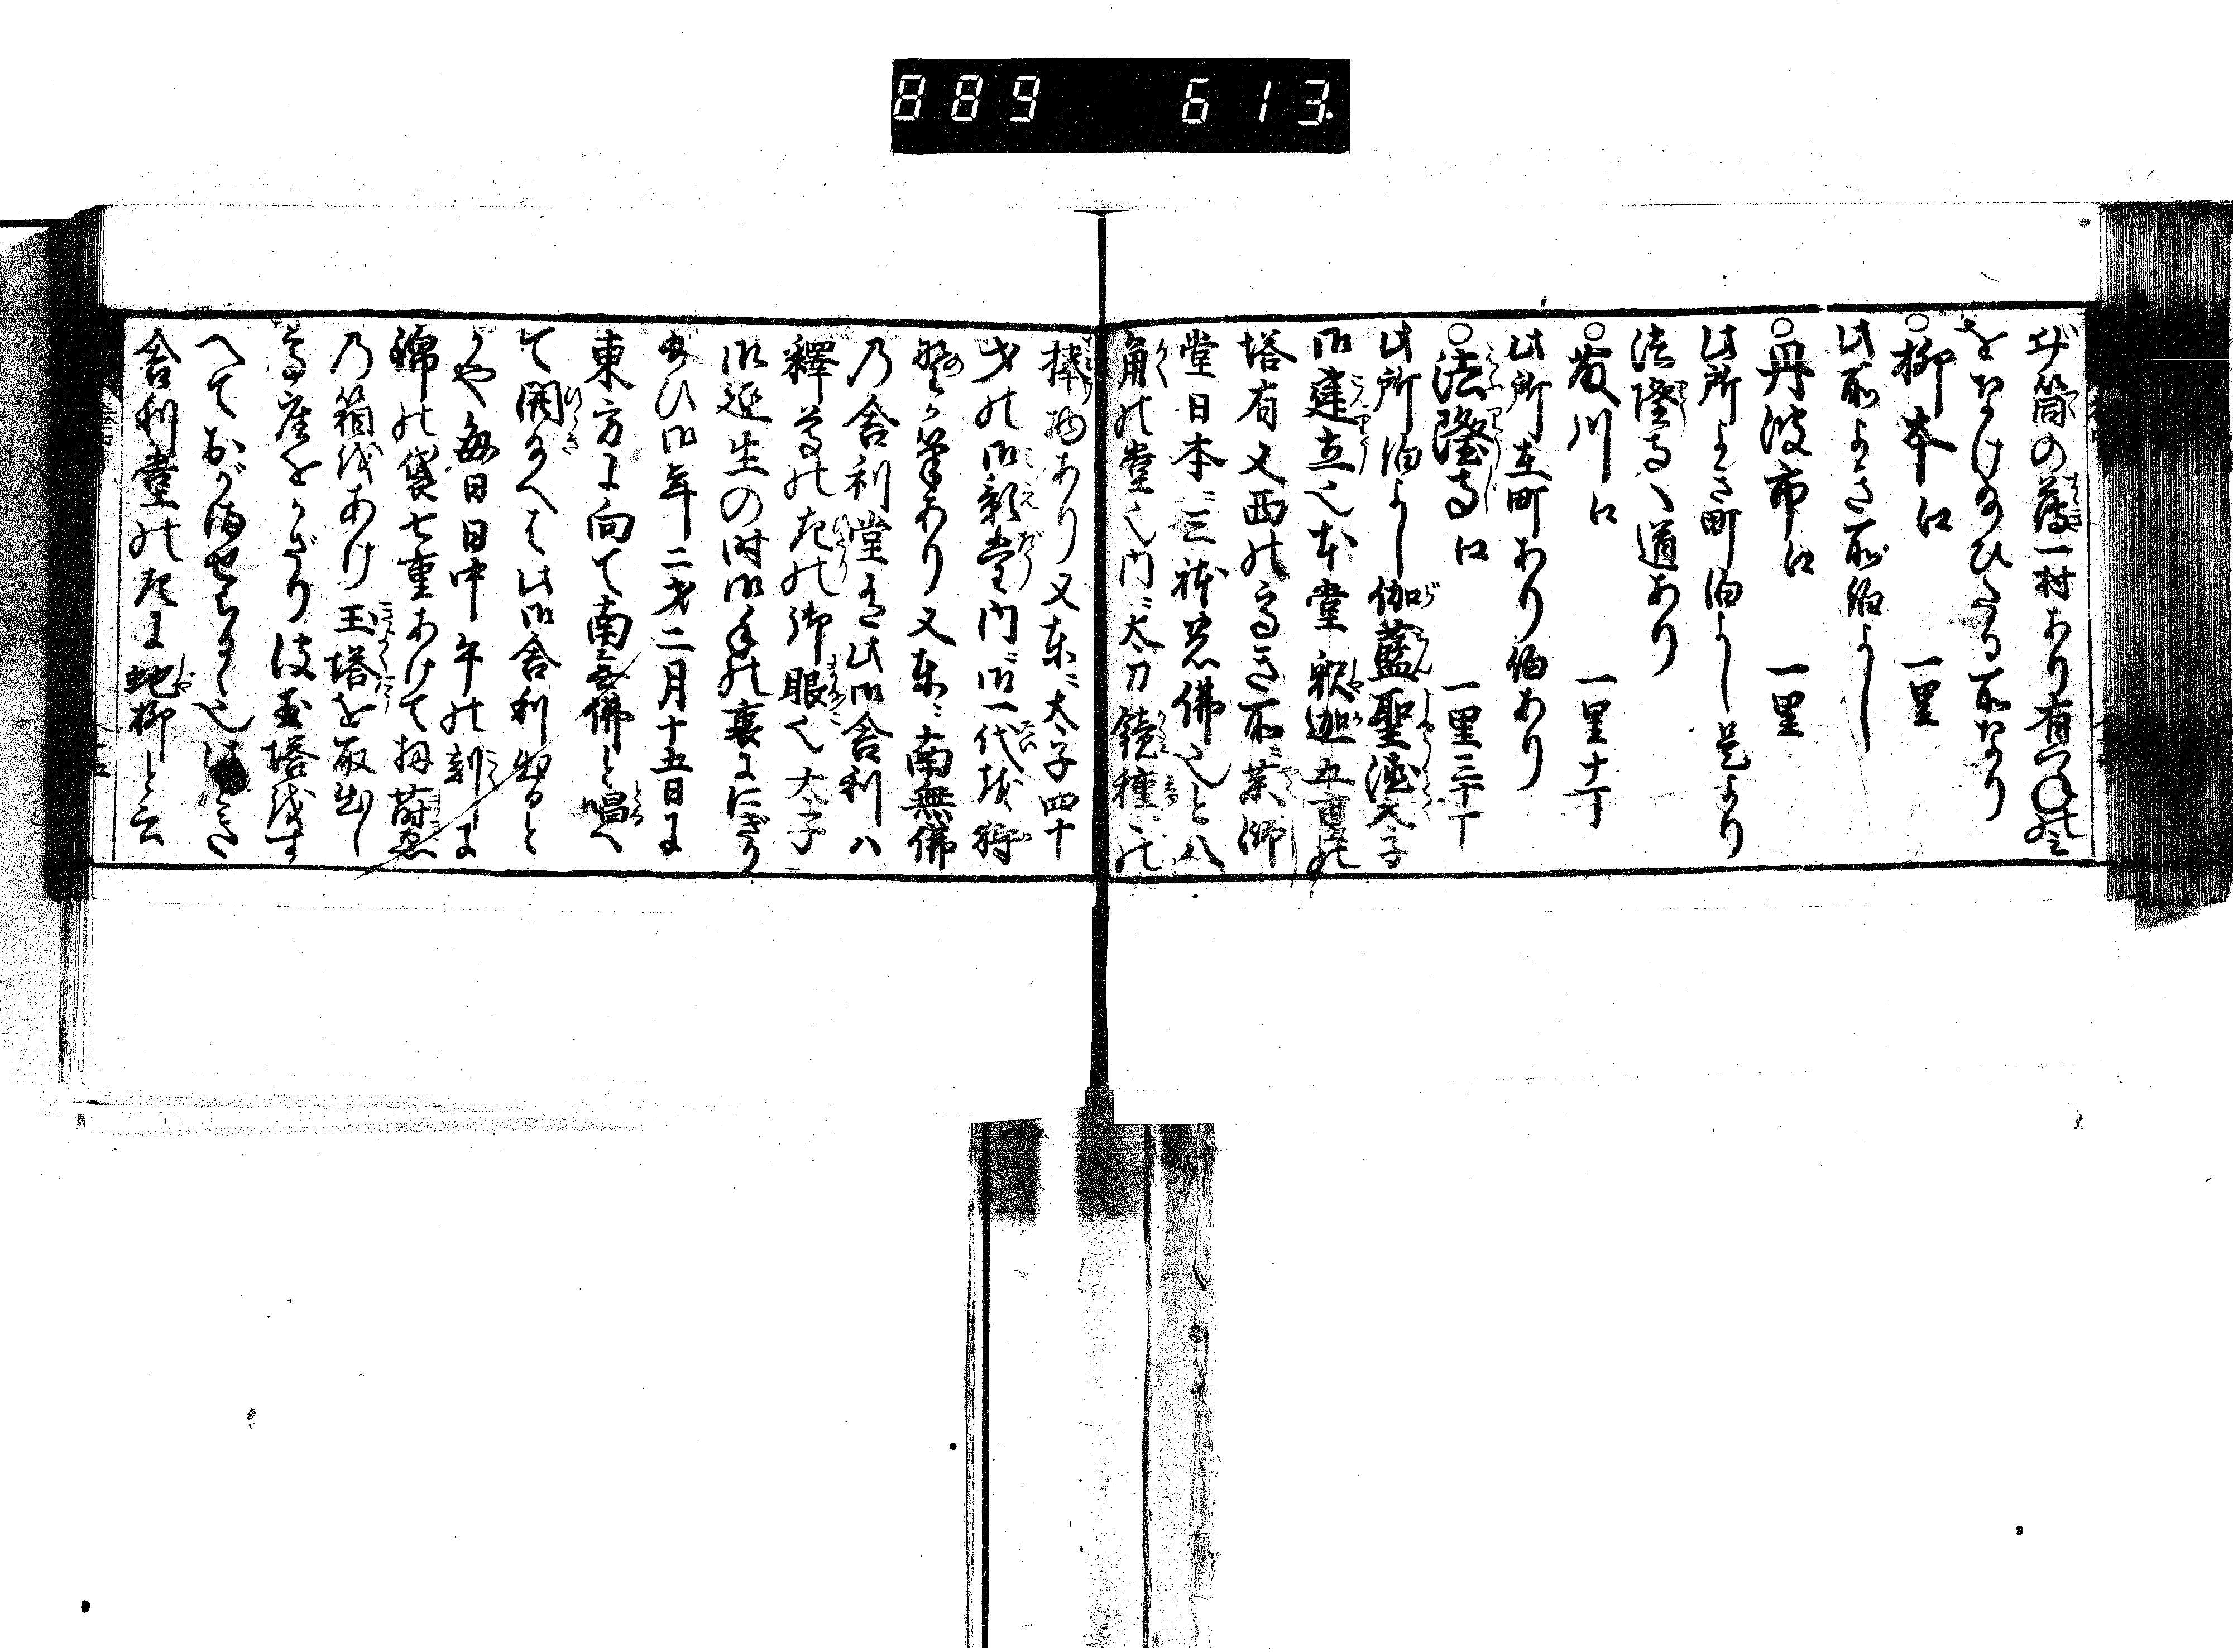 889 613
井筒の薄一村あり有つねの空
をなけのひたる所なり
○柳本江 一里
此所よき所泊よし
○丹波市江 一里
此所よき町泊よし是より
法隆寺へ道あり
川江 一里十丁
此所立町あり泊あり
○法隆寺江 一里三十丁
此所泊よし伽藍聖徳太子
御建立也本堂釈迦五重の
塔有又西の高き所ニ薬師
堂日本ニ三躰の佛也と八
角の堂也内ニ太刀鏡種々の
捧物あり又東ニ太子四十
才の御影堂内ニ御一代を狩
野か筆あり又東ニ南無佛
乃舎利堂有此御舎利ハ
釋尊の左の御眼也太子
御延生の時御手の裏ににぎり
給ひ御年二才二月十五日に
東方に向て南無佛と唱へ
て開給へは此御舎利出ると
かや毎日日中午の刻に
錦の袋七重あけて
乃箱をあけ玉塔を取出し
高座をかざり彼玉塔をす
へておがませらるゝ也
舎利堂の左に蛇柳と云